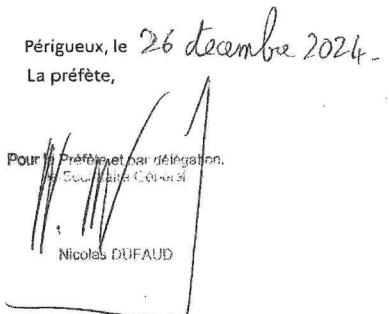 Périgueux, le 26 decembre 2024.
La préfète,
Pour la Préfète et par délégation,
le Secrétaire Général
Nicolas DUFAUD